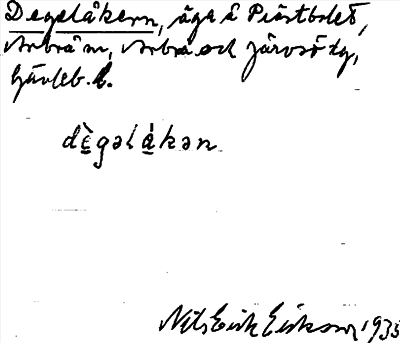 Degelåkern, äga å Prästbolet,
Arbrå n., Arbrå och Järvsö tg,
Gävleb. l.
dègəlákən
Nils Erik Eriksson 1935